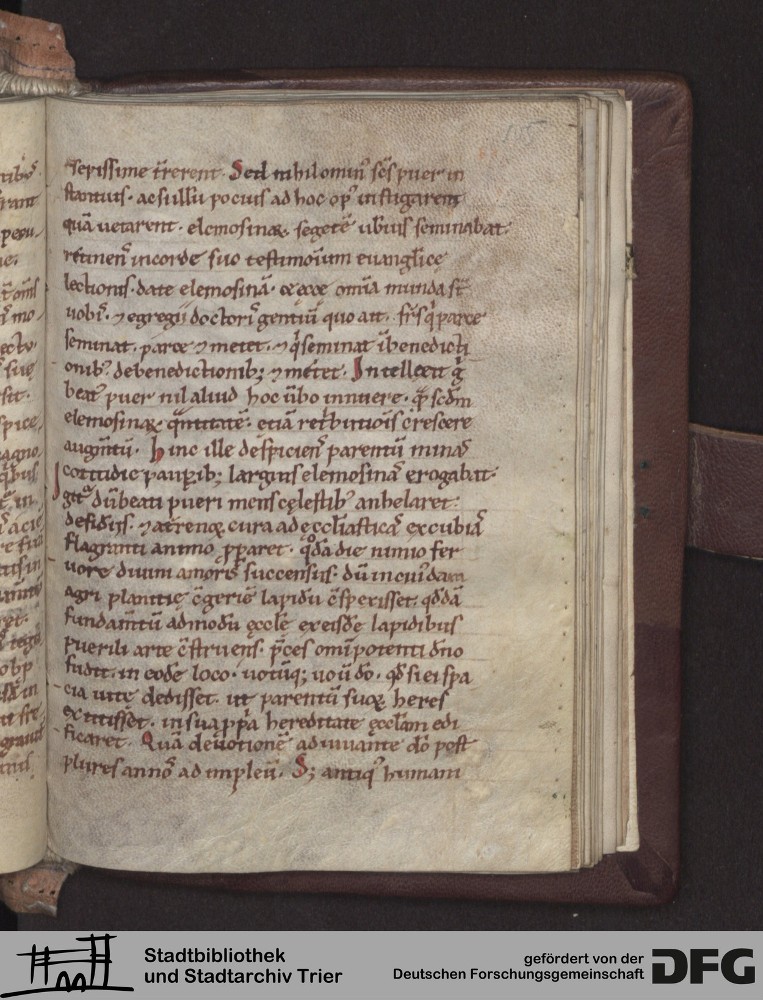 155
sepissime t̄rerent. Sed nihilomin' sc̄s puer in
stantius. ac si illū pocius ad hoc op' instigarent
quā uetarent. elemosinaꝝ segetē ub̄ius seminabat.
retinens in corde suo testimoniū euanglicę
lectionis. date elemosinā. ⁊ ecce om̄ia munda st̄
uobis. ⁊ egregii doctoris gentiū quo ait. fr̄s qͥ parce
seminat. parce ⁊ metet. ⁊ qͥ seminat ī benedicti
onib' de benedictionib; ⁊ metet. Intellexit g̊
beat' puer nil aliud hoc ūbo innuere. qͣ scd̄m
elemosinaꝝ qͣntitatē. etiā ret̄butiōis crescere
augm̄tū. Hinc ille despiciens parentū minas
cottidie paup̱ib; largius elemosinā erogabat.
Igit̄ dū beati pueri mens cęlestib' anhelaret
desid̄iis. ⁊ at̄renoꝝ cura ad ęccl̄iasticā excubiā
flagranti animo p̱p̱aret. qͣdā die nimio fer
uore diuini amoris succensus. dū in cui'dam
agri planitie c̄geriē lapidū c̄sp̱erisset. qd̄dā
fundam̄tū ad modū ęccl̄ę ex eisdē lapidibus
puerili arte c̄struens. p̄ces omīpotenti dn̄o
fudit. in eodē loco. uotūq; uouit dō. qd̄ si ei spa
cia uitę dedisset. ut parentū suoꝝ heres
extitisset. in sua pp̱a hereditate ęccl̄am edi
ficaret. Quā deuotionē adiuuante dō post
plures annos adimpleū. S; antiqͥ' humani
Stadtbibliothek
und Stadtarchiv Trier
gefördert von der
Deutschen Forschungsgemeinschaft
DFG